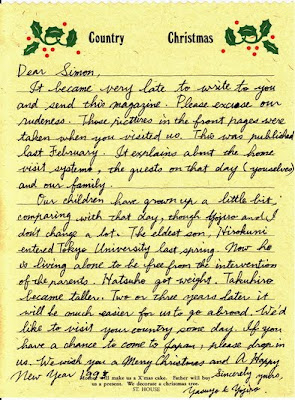 Country Christmas
Dear Simon,
It became very late to write to you
and send this magazine. Please excuse our
rudeness. Those pictures in the front pages were
taken when you visited us. This was published
last February. It explains about the home
visit systems, the guests on that day (yourselves)
and our family.
Our children have grown up a little bit,
comparing with that day, though Yojiro and I
don't change a lot. The eldest son, Hirokuni
entered Tokyo University last spring. Now he
is living alone to be free from the intervention
of the parents. Hatsuho got weight. Takuhiro
became taller. Two or three years later it
will be much easier for us to go abroad. We'd
like to visit your country some day. If you
have a chance to come to Japan, please drop in
us. We wish you a Merry Christmas and A Happy
New Year
will make us a X'mas cake. Father will buy
us a present. We decorate a christmas tree.
ST. HOUSE
Sincerely yours,